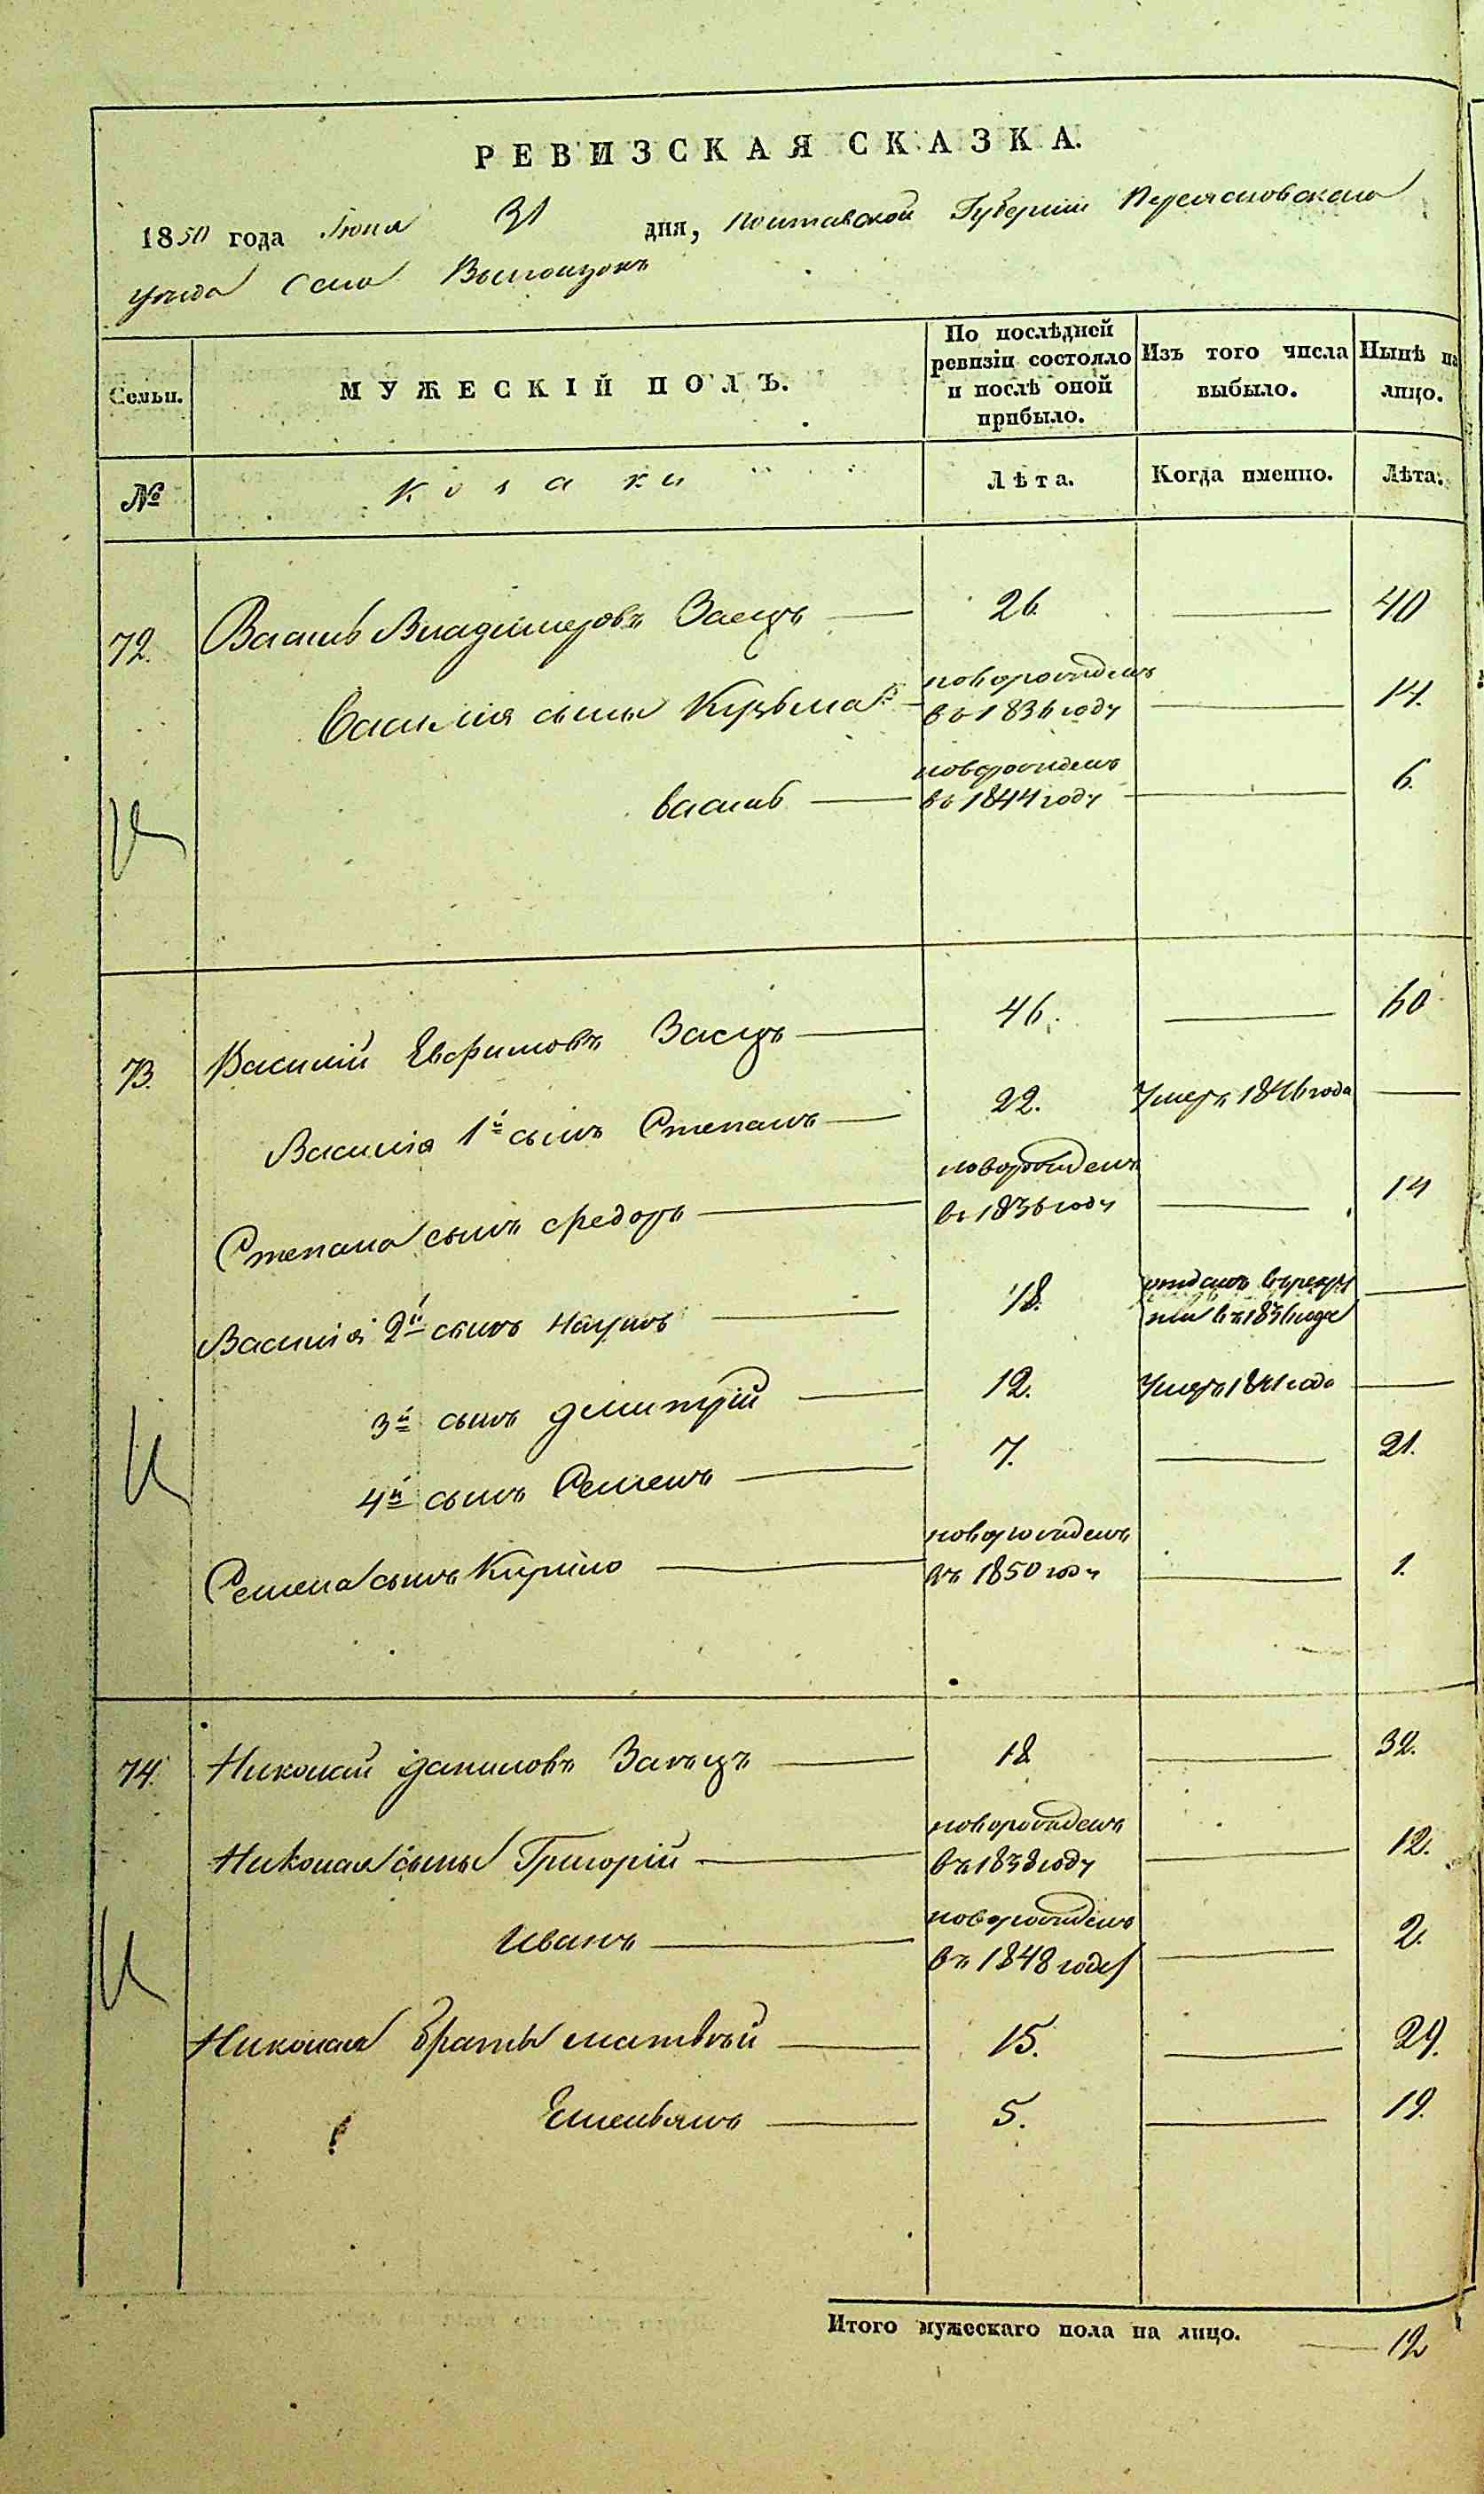 РЕВИЗСКАЯ СКАЗКА.
1850 года Июня 31 дня, Полтавской Губерніи Переясловскаго
уезда Села
Семьи.
МУЖЕСКІЙ ПОЛЪ.
По послѣдней ревизіи состояло и послѣ оной прибыло.
Изъ того числа выбыло.
Нынѣ на лицо.
№
Козаки
Лѣта.
Когда именно.
Лѣта.
72. Василь Владимеровъ Заецъ — 26. — 40
Василія сыны Кузьма — новорожденъ въ 1836 году — 14.
василь — новорожденъ въ 1844 году — 6.
73. Василій Евфимовъ Заецъ — 46. — 60
Василія 1й сынъ Степанъ — 22. Умеръ 1846 года —
Степана сынъ Федоръ — новорожденъ въ 1836 году — 14
Василія 2й сынъ Наумъ — 18. отданъ въ рекруты въ 1836 году —
3й сынъ Дмитрій — 12. Умеръ 1841 года —
4й сынъ Семенъ — 7. — 21.
Семена сынъ Кирило — новорожденъ въ 1850 году — 1.
74. Николай Даниловъ Заецъ — 18 — 32.
Николая сыны Григорій — новорожденъ въ 1838 году — 12.
Иванъ — новорожденъ въ 1848 году — 2.
Николая браты Матвѣй — 15. — 29.
Емельянъ — 5. — 19.
Итого мужескаго пола на лицо. — 12